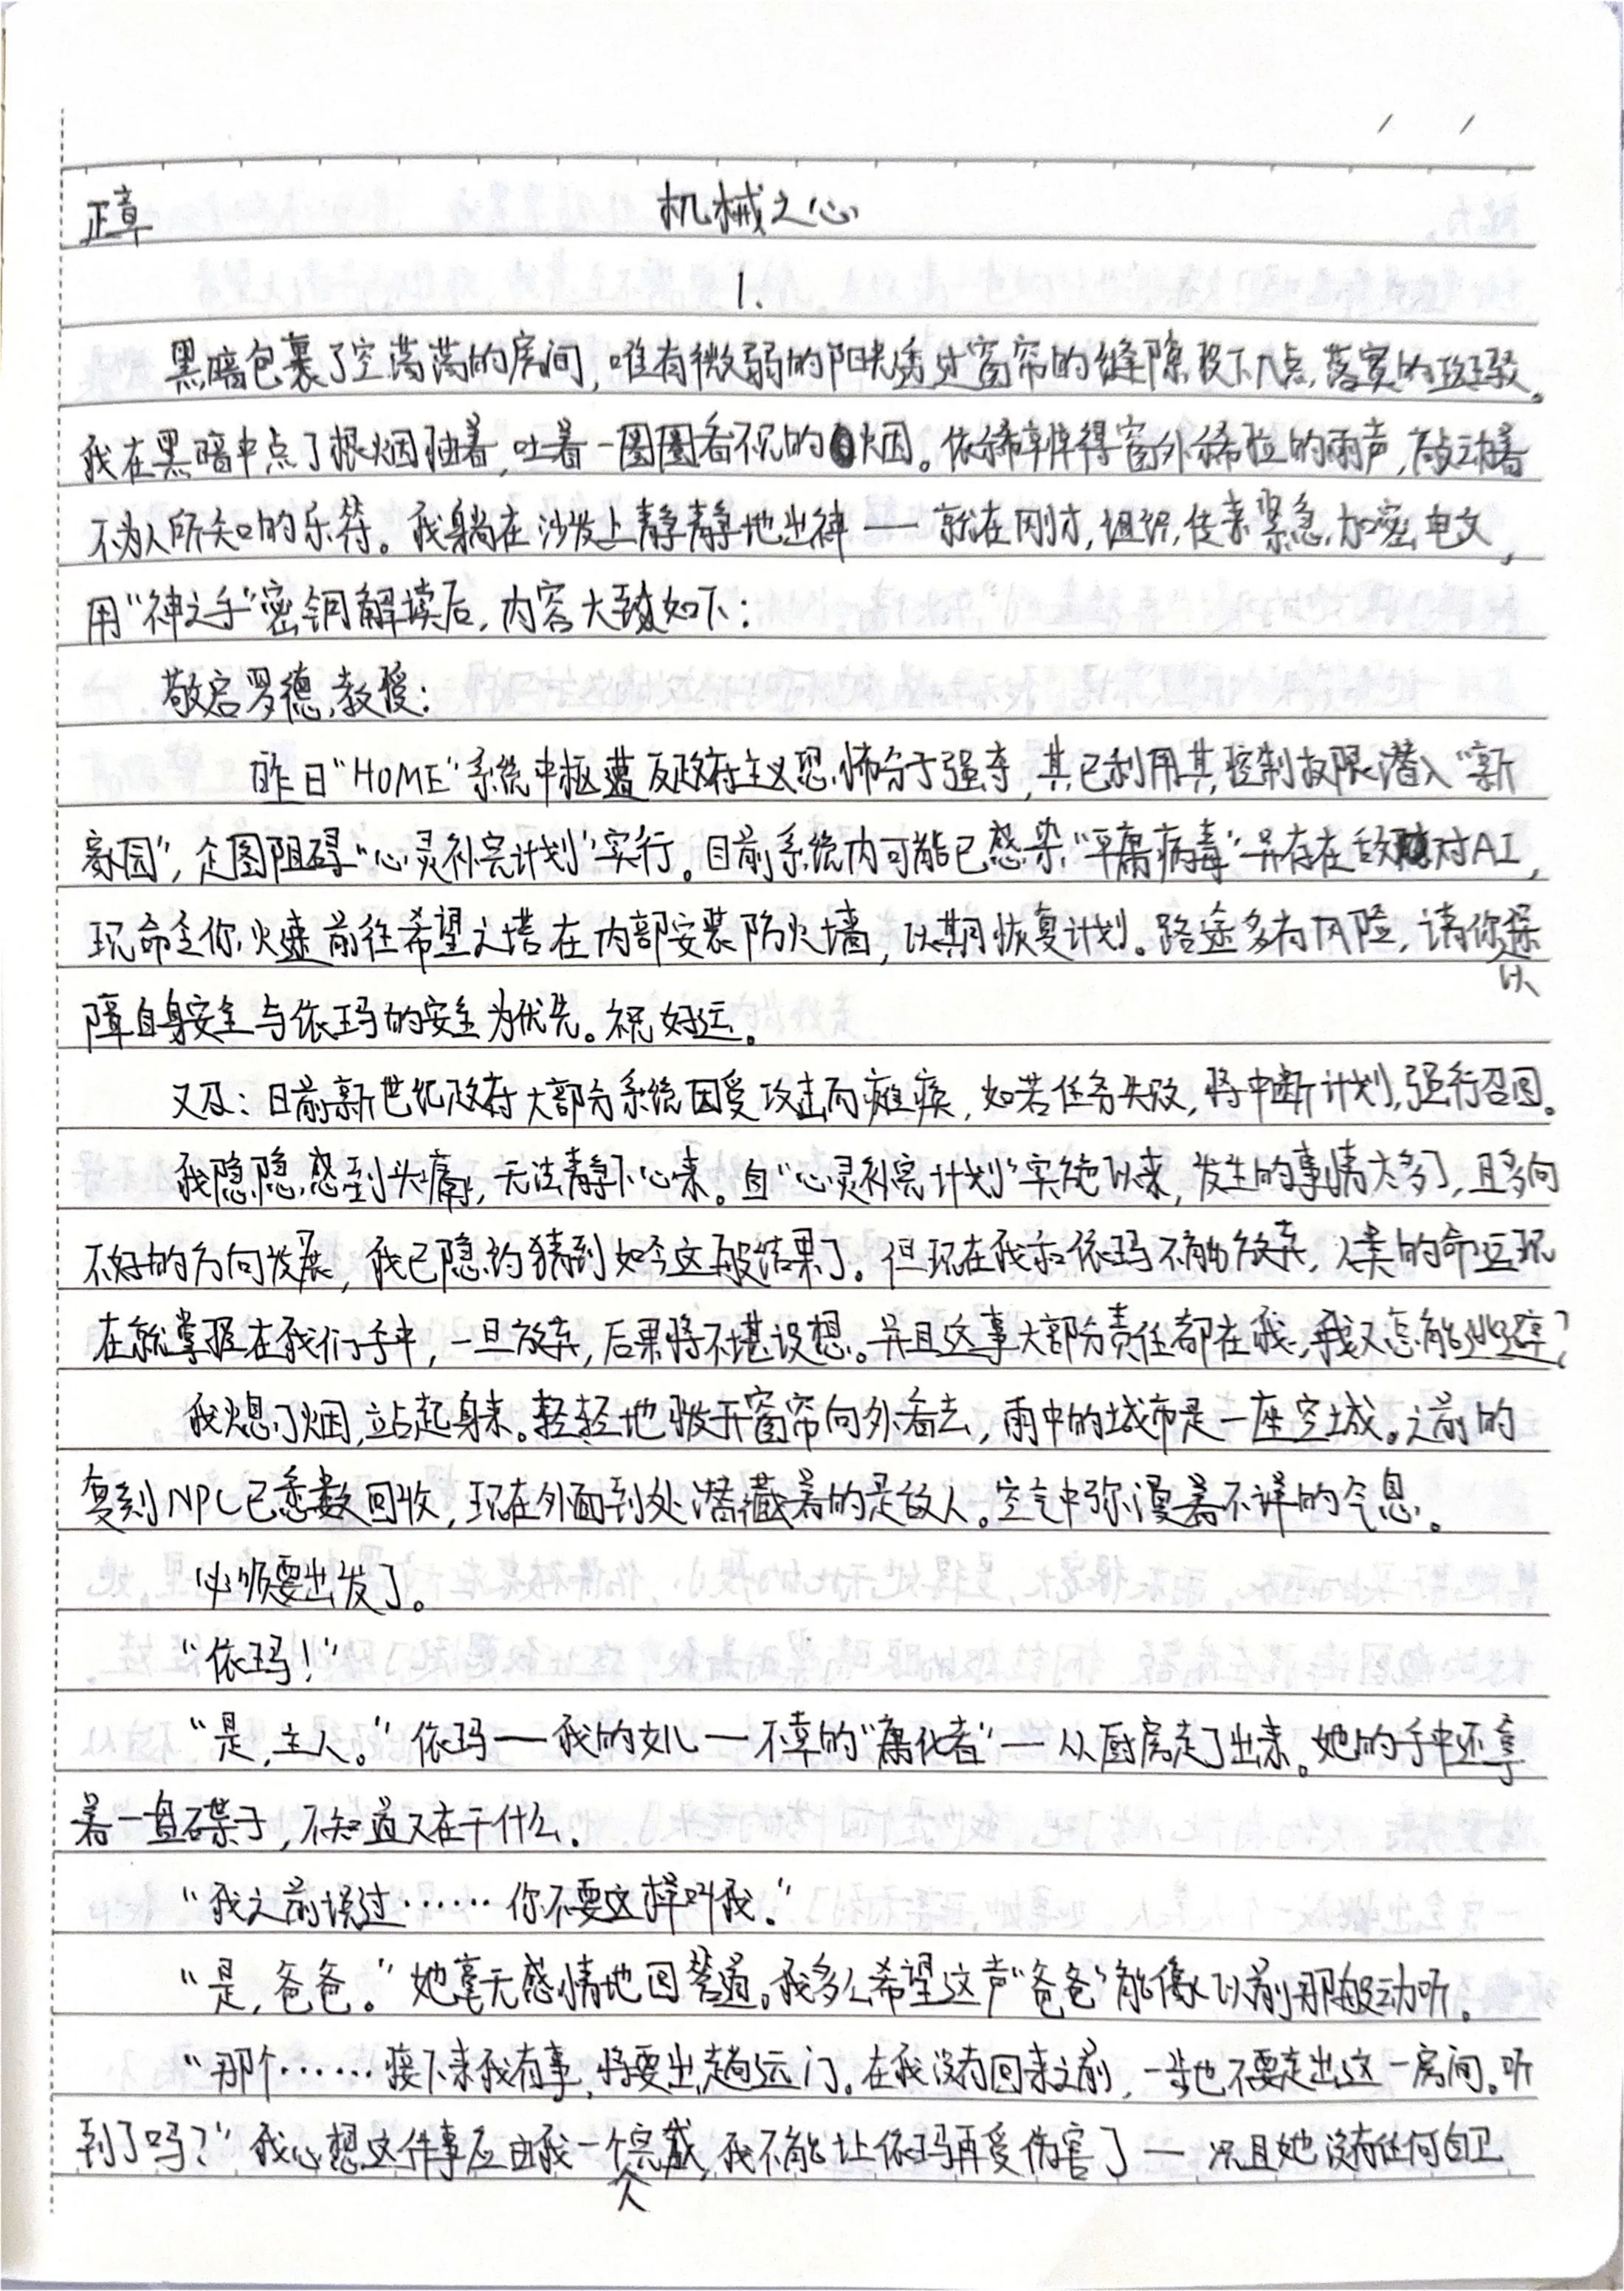 正章
机械之心
1.
黑暗包裹了空荡荡的房间，唯有微弱的阳光透过窗帘的缝隙投下几点落寞的斑驳。
我在黑暗中点了根烟抽着，吐着一圈圈看不见的烟。依稀听得窗外稀拉的雨声，敲动着
不为人所知的乐符。我躺在沙发上静静地出神——就在刚才，组织传来紧急加密电文，
用“神之手”密钥解读后，内容大致如下：
敬启罗德教授：
昨日“HOME”系统中枢遭反政府主义恐怖分子强夺，其已利用其控制权限潜入“新
家园”，企图阻碍“心灵补完计划”实行。目前系统内可能已感染“平庸病毒”并存在敌对AI，
现命令你火速前往希望之塔在内部安装防火墙，以期恢复计划。路途多有风险，请你以保
障自身安全与依玛的安全为优先。祝好运。
又及：日前新世纪政府大部分系统因受攻击而瘫痪，如若任务失败，将中断计划，强行召回。
我隐隐感到头痛，无法静下心来。自“心灵补完计划”实施以来，发生的事情太多了，且多向
不好的方向发展，我已隐约猜到如今这般结果了。但现在我和依玛不能放弃，人类的命运现
在就掌握在我们手中，一旦放弃，后果将不堪设想。并且这事大部分责任都在我，我又怎能逃避？
我熄了烟，立站起身来。轻轻地拨开窗帘向外看去，雨中的城市是一座空城。之前的
复刻NPC已悉数回收，现在外面到处潜藏着的是敌人。空气中弥漫着不详的气息。
必须要出发了。
“依玛！”
“是，主人。”依玛——我的女儿——不幸的“庸化者”——从厨房走了出来。她的手中还拿
着一盘碟子，不知道又在干什么。
“我之前说过……你不要这样叫我。”
“是，爸爸。”她毫无感情地回答道。我多么希望这声“爸爸”能像以前那般动听。
“那个……接下来我有事，将要出趟远门。在我没有回来之前，一步也不要走出这一房间。听
到了吗？”我心想这件事应由我一个人完成，我不能让依玛再受伤害了——况且她没有任何自卫